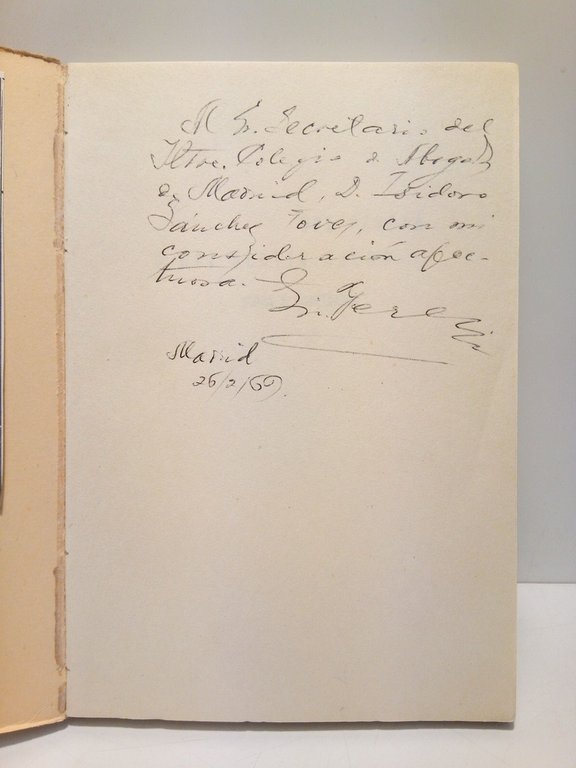 Al Sr. Secretario del
Iltre. Colegio de Abogados
de Madrid, D. Isidoro
Sánchez Tovez, con mi
consideración afec-
tuosa.
Madrid
26/2/69.